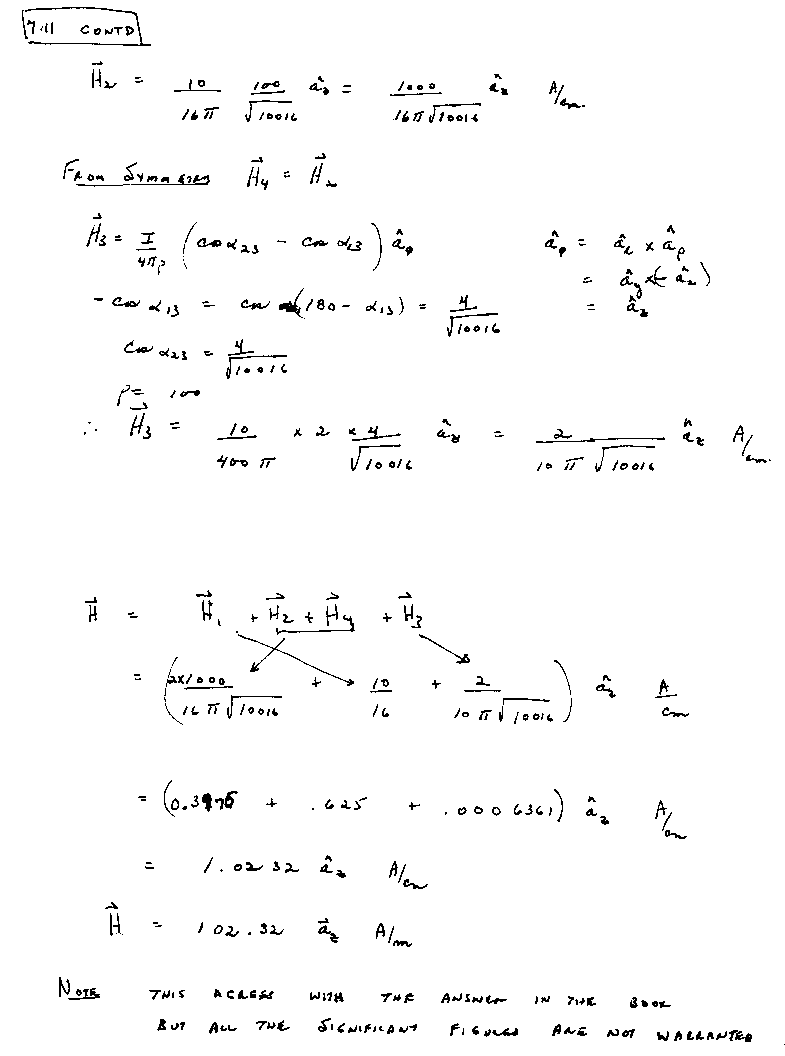 7.11 CONTD
H⃗₂ = 10/16π 100/√10016 âz = 1000/16π√10016 âz A/cm.
FROM SYMMETRY H⃗₄ = H⃗₂
H⃗₃ = I/4πρ (cos α₂₃ - cos α₁₃) âφ âφ = âl × âρ
= ây × (- âx)
- cos α₁₃ = cos (180 - α₁₃) = 4/√10016 = âz
cos α₂₃ = 4/√10016
ρ = 100
∴ H⃗₃ = 10/400π × 2 × 4/√10016 âz = 2/10π√10016 âz A/cm.
H⃗ = H⃗₁ + H⃗₂ + H⃗₄ + H⃗₃
= (2x1000/16π√10016 + 10/16 + 2/10π√10016) âz A/cm
= (0.3976 + .625 + .0006361) âz A/cm
= 1.0232 âz A/cm
H⃗ = 102.32 a⃗z A/m
NOTE THIS AGREES WITH THE ANSWER IN THE BOOK
BUT ALL THE SIGNIFICANT FIGURES ARE NOT WARRANTED